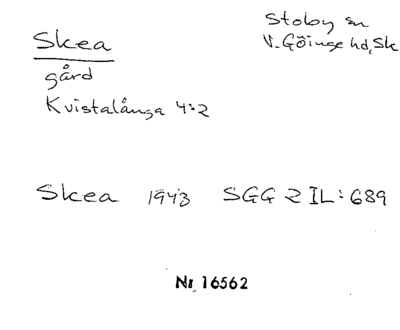 Skea
Stoby sn
V. Göinge hd, Sk
gård
Kvistalånga 4:2
Skea 1943 SGG 2 IL: 689
Nr 16562